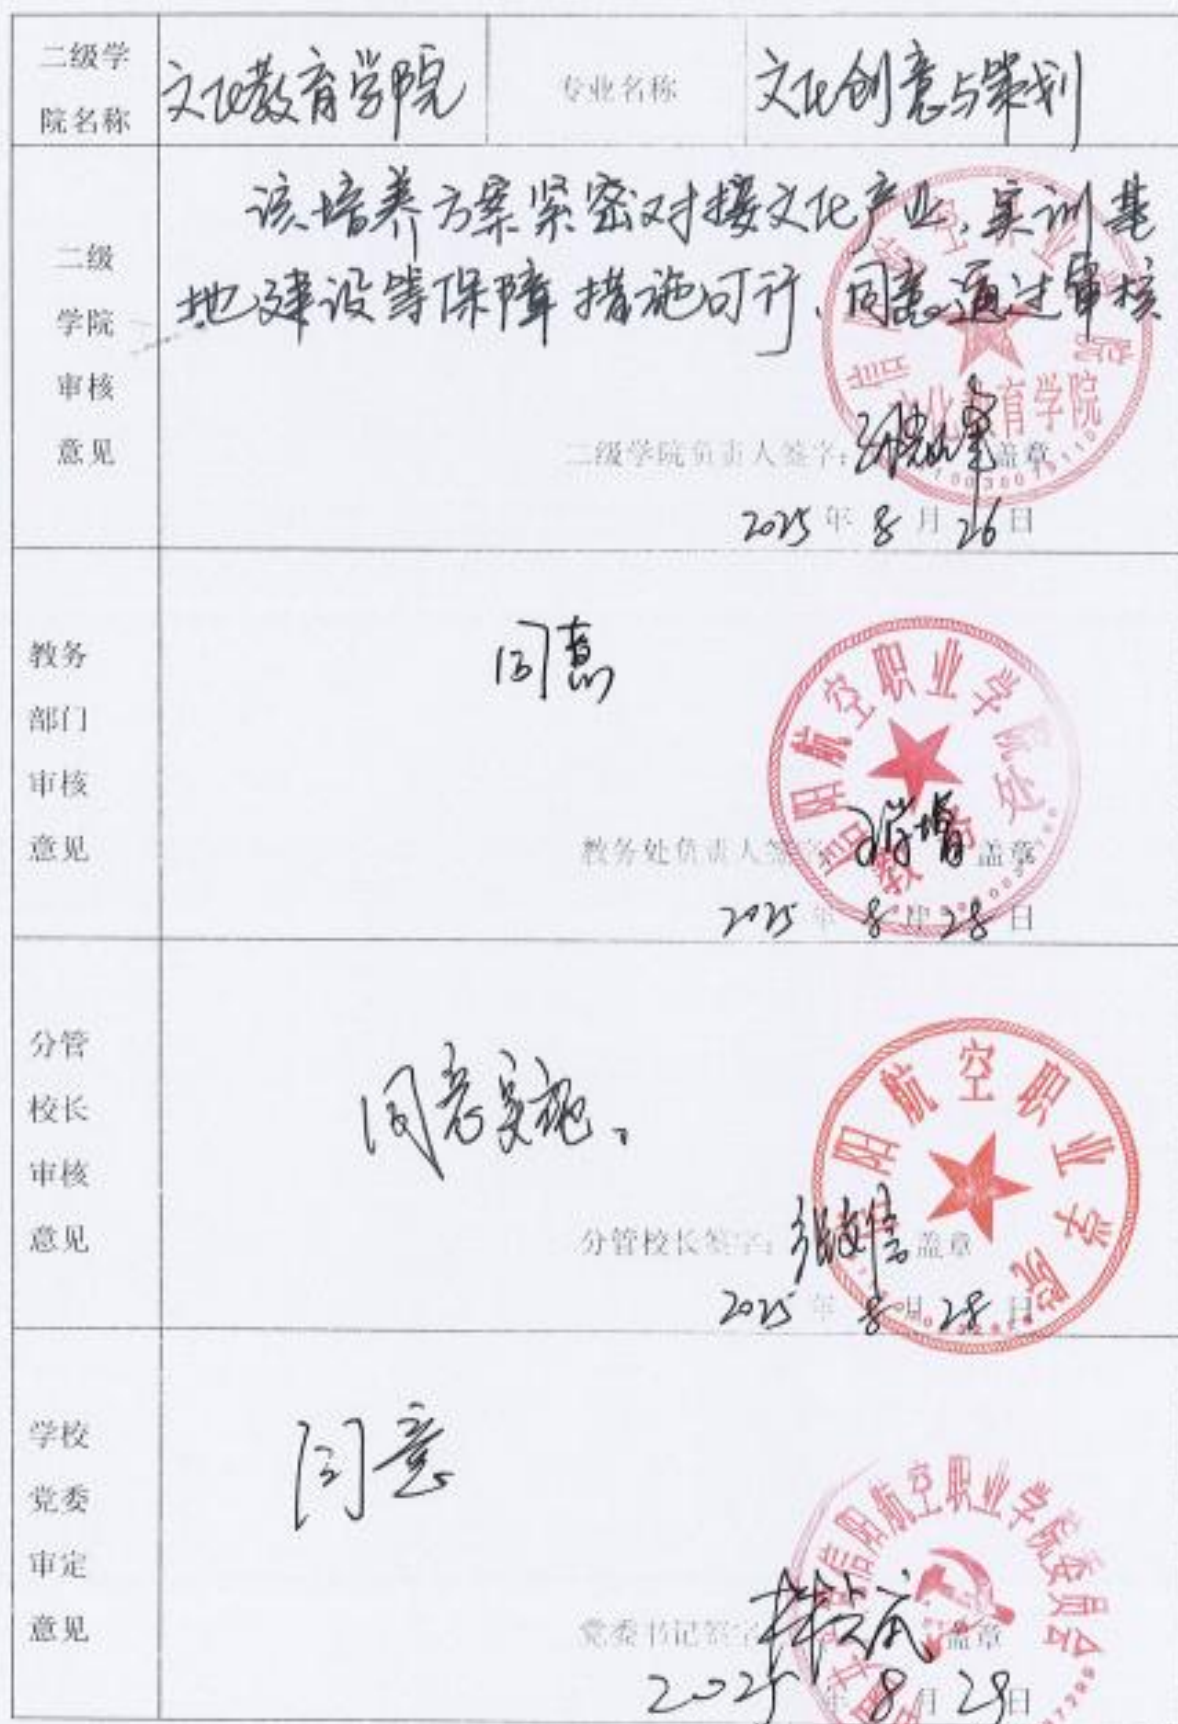 二级学
院名称
文化教育学院
专业名称
文化创意与策划
二级
学院
审核
意见
该培养方案紧密对接文化产业,实训基
地建设等保障措施可行,同意通过审核
文化教育学院
二级学院负责人签字: 盖章
2025年8月26日
教务
部门
审核
意见
同意
信阳航空职业学院教务处
教务处负责人签字: 盖章
2025年8月28日
分管
校长
审核
意见
同意实施。
信阳航空职业学院
分管校长签字: 盖章
2025年8月28日
学校
党委
审定
意见
同意
信阳航空职业学院委员会
党委书记签字 盖章
2025年8月29日